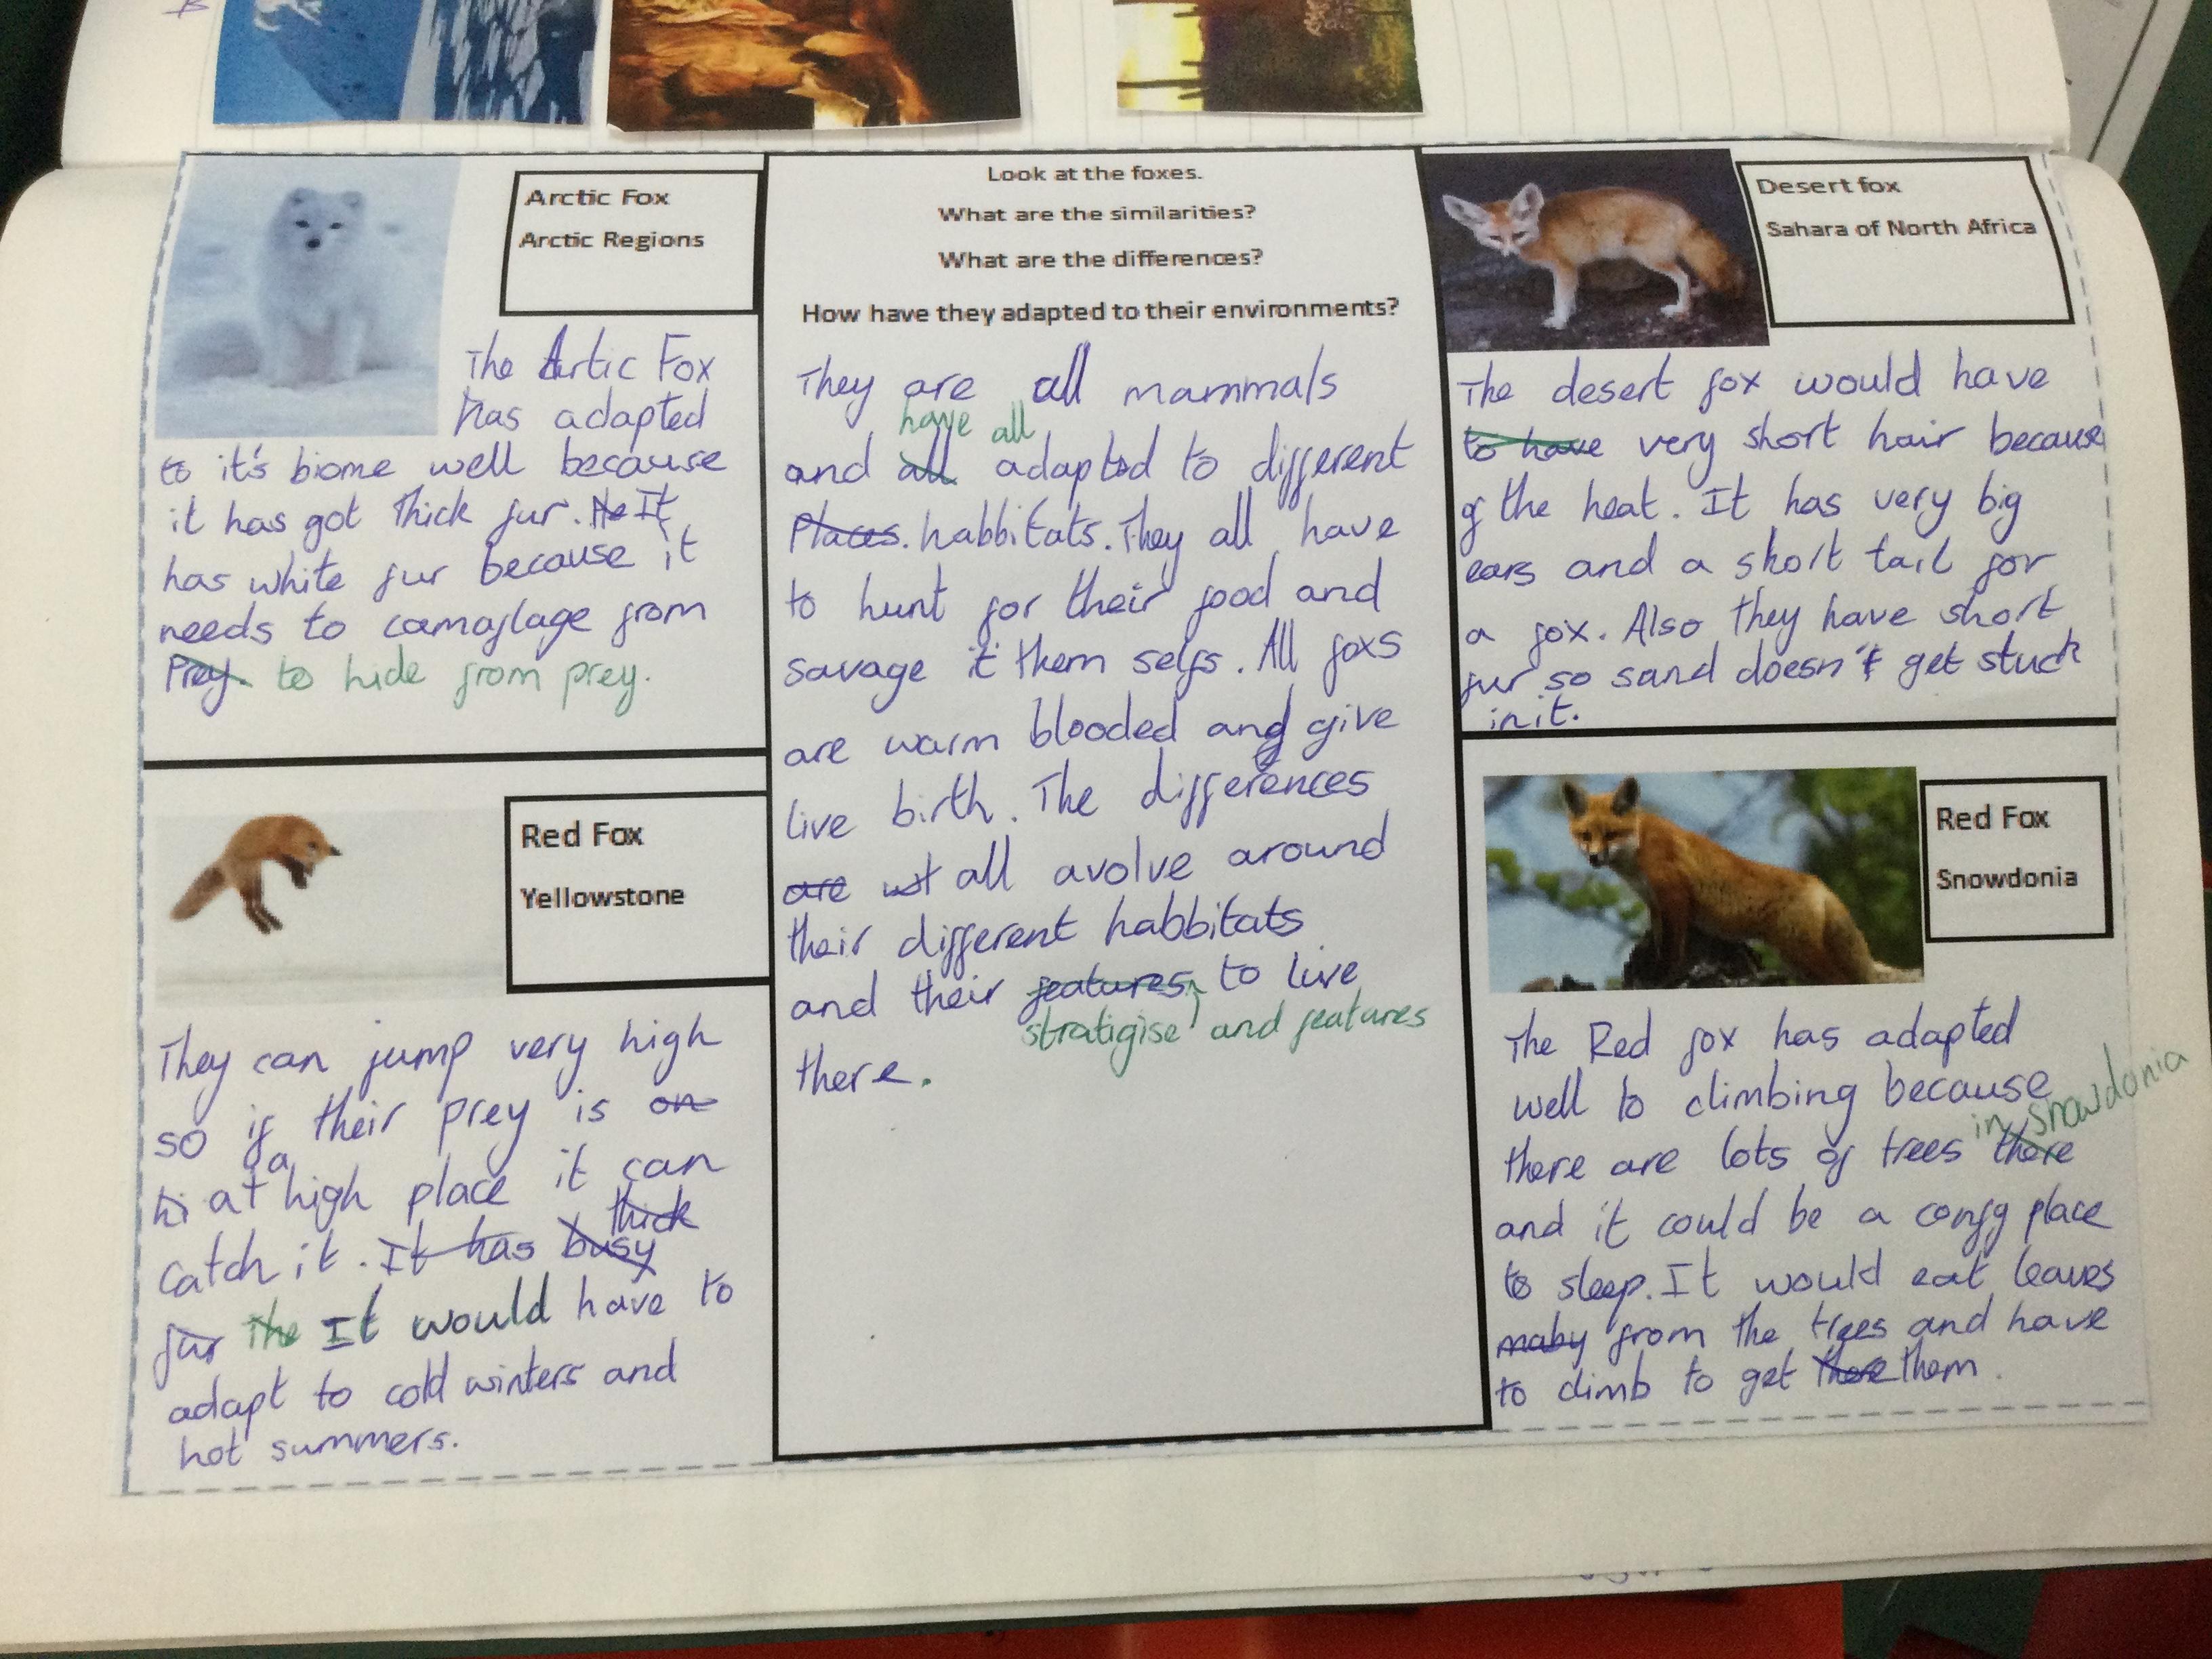 Arctic Fox
Arctic Regions
The Artic Fox
has adapted
to it's biome well because
it has got thick fur. He It
has white fur because it
needs to camoflage from
Prey. to hide from prey.
Red Fox
Yellowstone
They can jump very high
so if their prey is on
hi at a high place it can
catch it. It has busy thick
fur The It would have to
adapt to cold winters and
hot summers.
Look at the foxes.
What are the similarities?
What are the differences?
How have they adapted to their environments?
They are all mammals
have all
and all adapted to different
Places. habbitats. They all have
to hunt for their food and
savage it them selfs. All foxs
are warm blooded and give
live birth. The differences
are all avolve around
their different habbitats
and their features to live
stratigise and features
there.
Desert fox
Sahara of North Africa
The desert fox would have
to have very short hair because
of the heat. It has very big
ears and a short tail for
a fox. Also they have short
fur so sand doesn't get stuck
in it.
Red Fox
Snowdonia
The Red fox has adapted
well to climbing because
in snowdonia
there are lots of trees there
and it could be a comfg place
to sleep. It would eat leaves
maby from the trees and have
to climb to get there them.